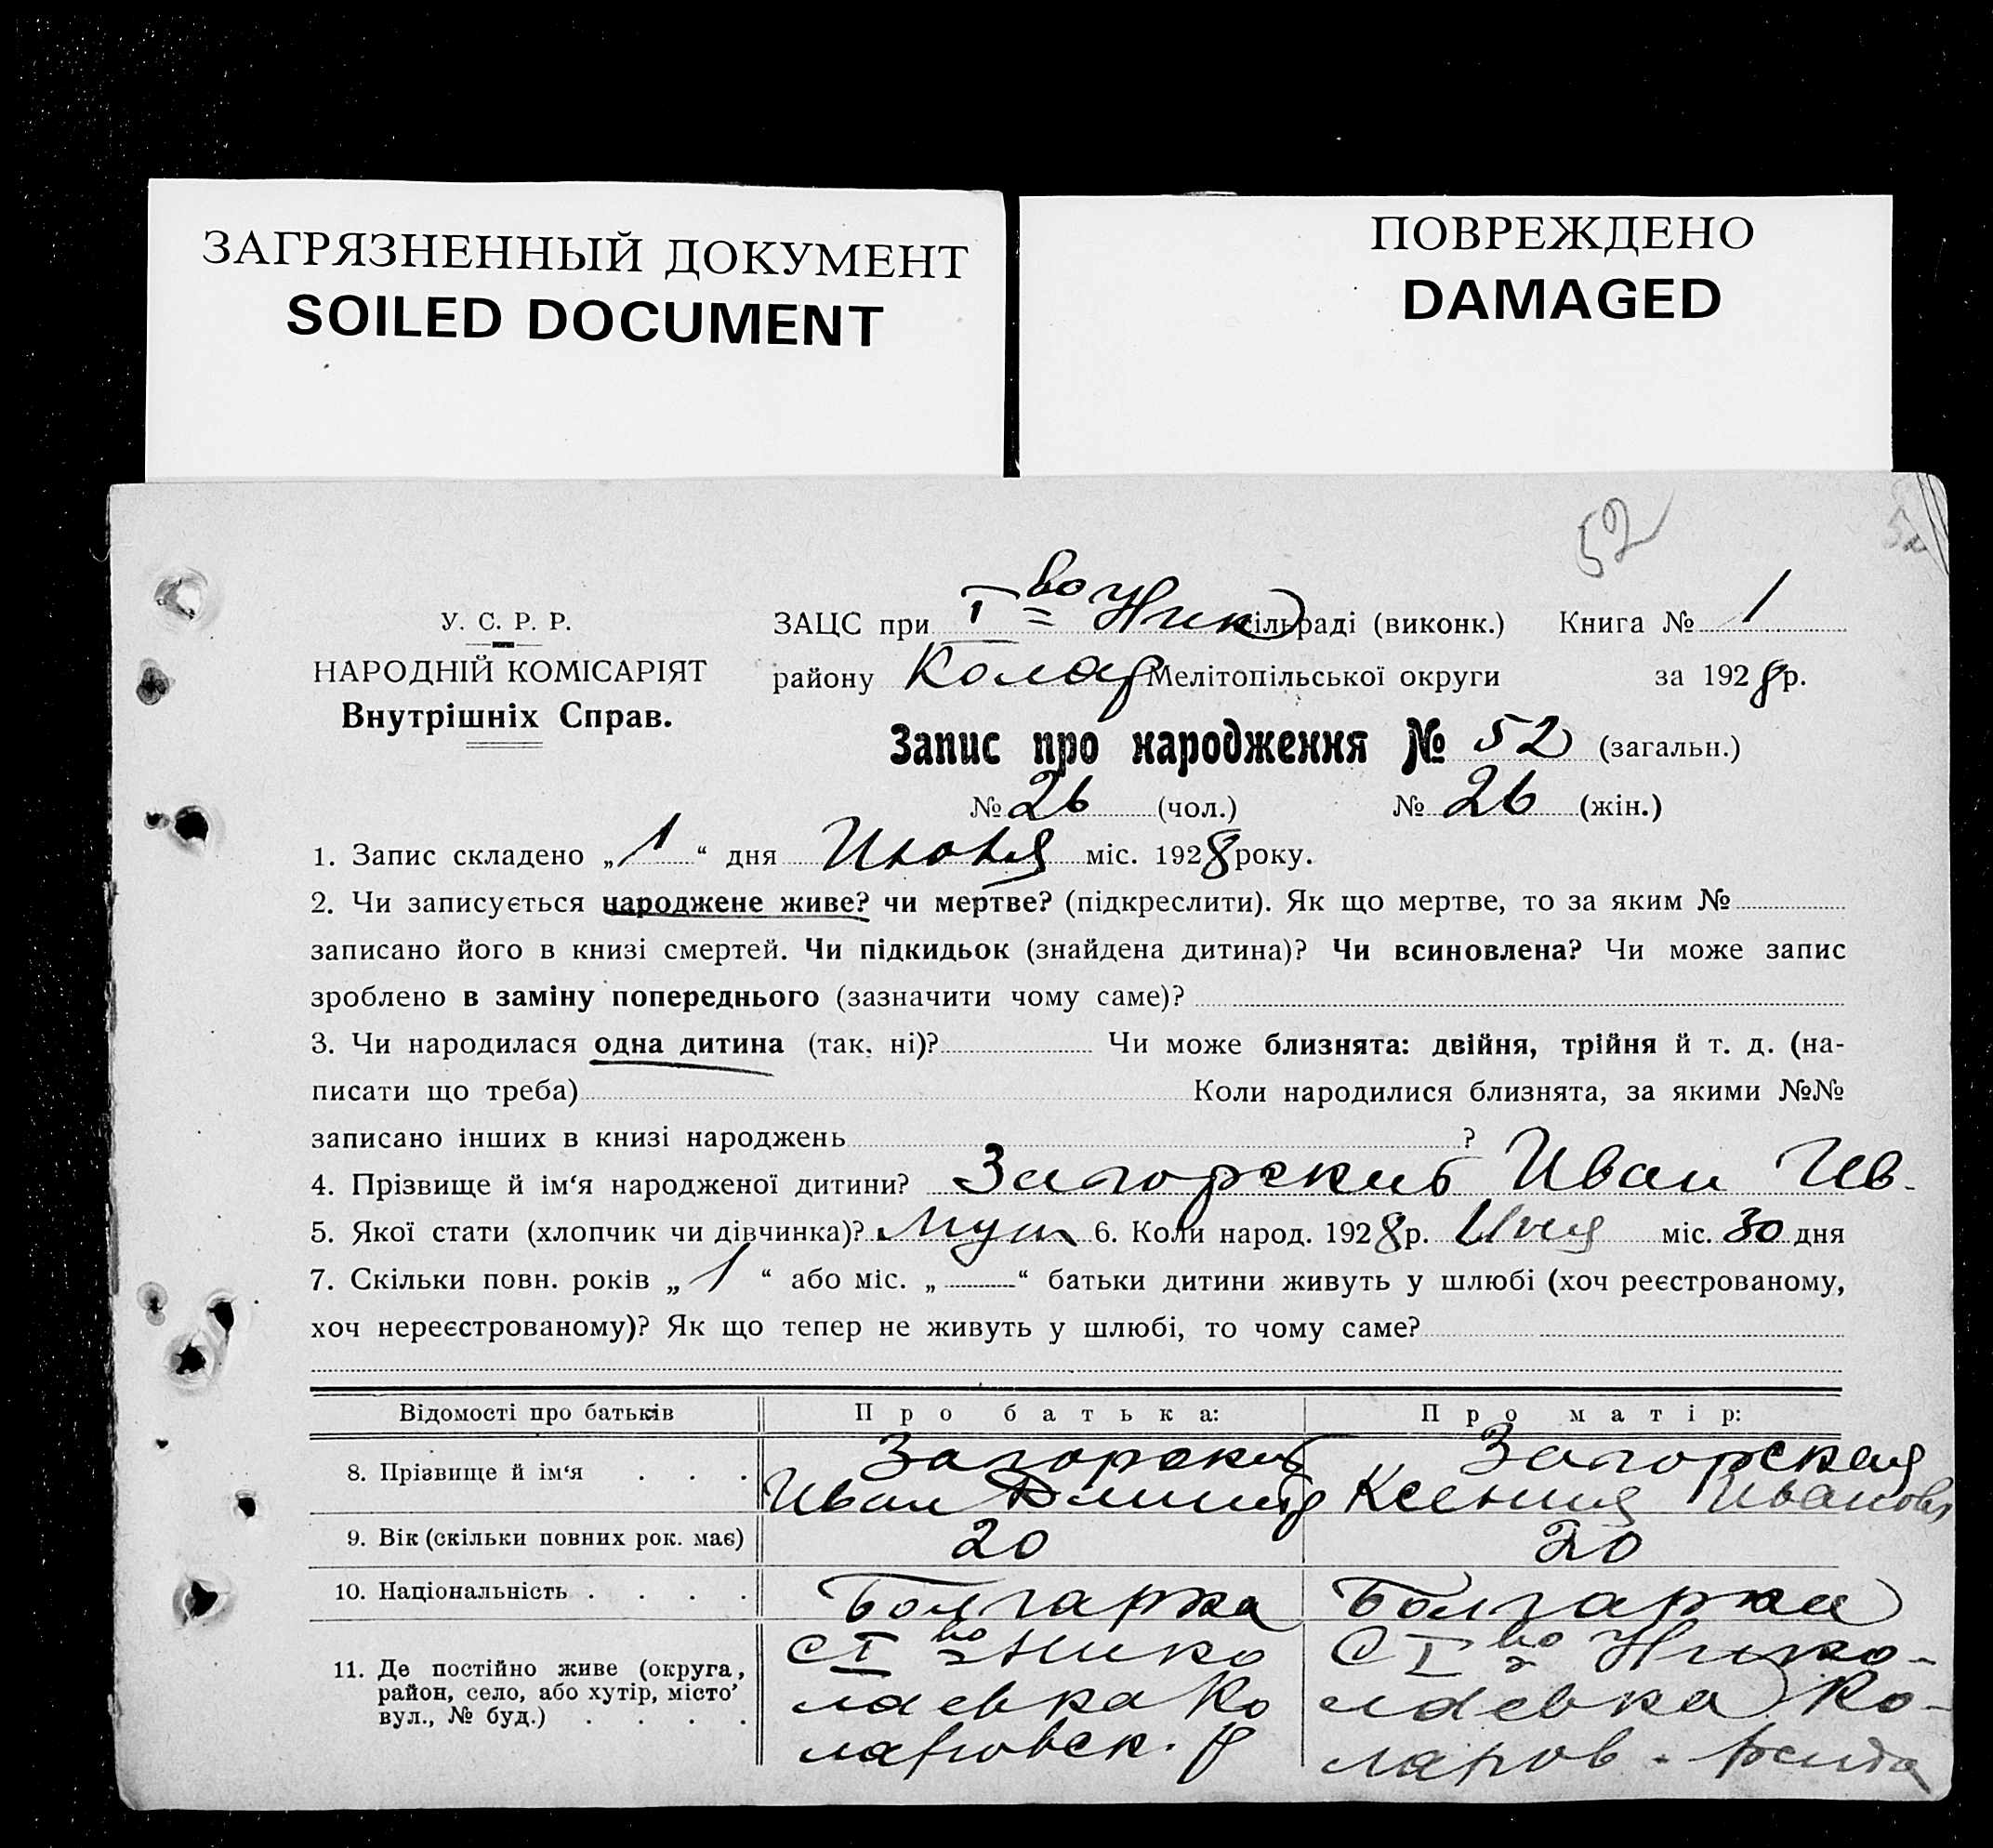 ЗАГРЯЗНЕННЫЙ ДОКУМЕНТ
SOILED DOCUMENT
ПОВРЕЖДЕНО
DAMAGED
52
52
У. С. Р. Р.
НАРОДНІЙ КОМІСАРІЯТ
Внутрішніх Справ.
ЗАЦС при I во Ник сільраді (виконк.) Книга № 1
району Колар Мелітопільської округи за 1928 р.
Запис про народження № 52 (загальн.)
№ 26 (чол.) № 26 (жін.)
1. Запис складено „ 1 “ дня Июня міс. 1928 року.
2. Чи записується народжене живе? чи мертве? (підкреслити). Як що мертве, то за яким №
записано його в книзі смертей. Чи підкидьок (знайдена дитина)? Чи всиновлена? Чи може запис
зроблено в заміну попереднього (зазначити чому саме)?
3. Чи народилася одна дитина (так, ні)? Чи може близнята: двійня, трійня й т. д. (на-
писати що треба) Коли народилися близнята, за якими №№
записано інших в книзі народжень ?
4. Прізвище й ім‘я народженої дитини? Загорский Иван Ив.
5. Якої стати (хлопчик чи дівчинка)? Муж 6. Коли народ. 1928 р. міс. 30 дня
7. Скільки повн. років „ 1 “ або міс. „ “ батьки дитини живуть у шлюбі (хоч реєстрованому,
хоч нереєстрованому)? Як що тепер не живуть у шлюбі, то чому саме?
Відомості про батьків Про батька: Про матір:
8. Прізвище й ім‘я . . . Загорский Загорская
Иван Ксения Иванов
9. Вік (скільки повних рок. має) 20 20
10. Національність . . . . Болгарка Болгарка
11. Де постійно живе (округа, район, село, або хутір, місто’ вул., № буд.) . . . .
С I во Нико
лаевка Ко
ларовск. р
С I во Нико-
лаевка Ко-
ларов.